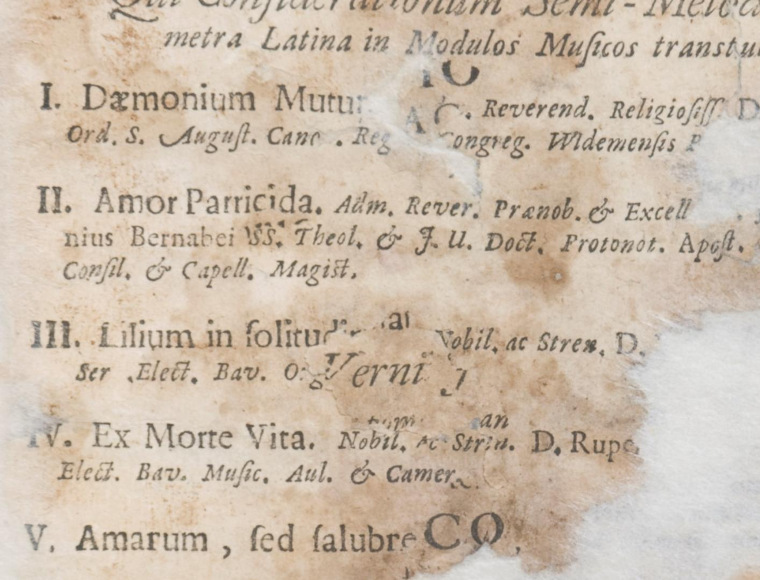 Qui Considerationum Semi-
metra Latina in Modulos Muſicos
I. Dæmonium Reverend. D
Ord. S. Auguſt. Congreg. Widemenſis P
II. Amor Parricida. Adm. Rever. Prænob. & Excell
nius Bernabei SS. Theol. & J. U. Doct. Protonot. Apoſt.
Conſil. & Capell. Magiſt.
III. Lilium in Nobil. ac Stren. D.
Ser. Elect. Bav.
IV. Ex Morte Vita. Nobil. ac Stren. D.
Elect. Bav. Muſic. Aul. & Camer.
V. Amarum, ſed ſalubre CO